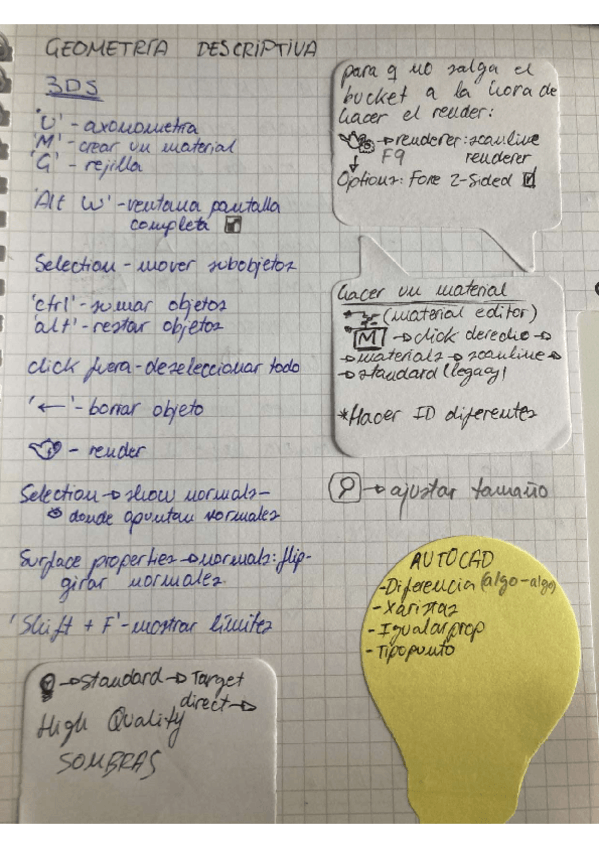 GEOMETRÍA DESCRIPTIVA
3DS
'U' - axonometra
'M' - crear un material
'G' - rejilla
'Alt W' - ventana pantalla
completa
Selection - mover subobjetos
'ctrl' - sumar objetos
'alt' - restar objetos
click fuera - deseleccionar todo
'←' - borrar objeto
- render
Selection → show normals -
→ donde apuntan normales
Surface properties → normals: flip -
girar normales
'Shift + F' - mostrar límites
→ standard → Target
direct →
High Quality
SOMBRAS
para q no salga el
bucket a la hora de
hacer el render:
→ renderer: scanline
F9 renderer
Options: Fore 2-Sided
hacer un material
(material editor)
M → click derecho →
→ materials → scanline →
→ standard (legacy)
*Hacer ID diferentes
→ ajustar tamaño
AUTOCAD
- Diferencia (algo-algo)
- Xaristas
- Igualarprop
- Tipopunto